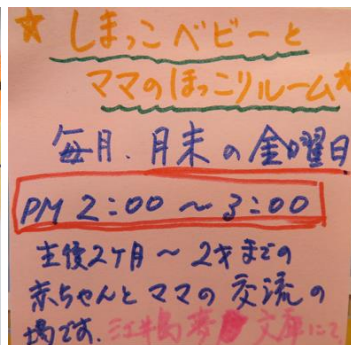 ☆しまっこベビーと
ママのほっこりルーム☆
毎月.月末の金曜日
PM 2:00～3:00
生後2ケ月～2才までの
赤ちゃんとママの交流の
場です.江井島 文庫にて